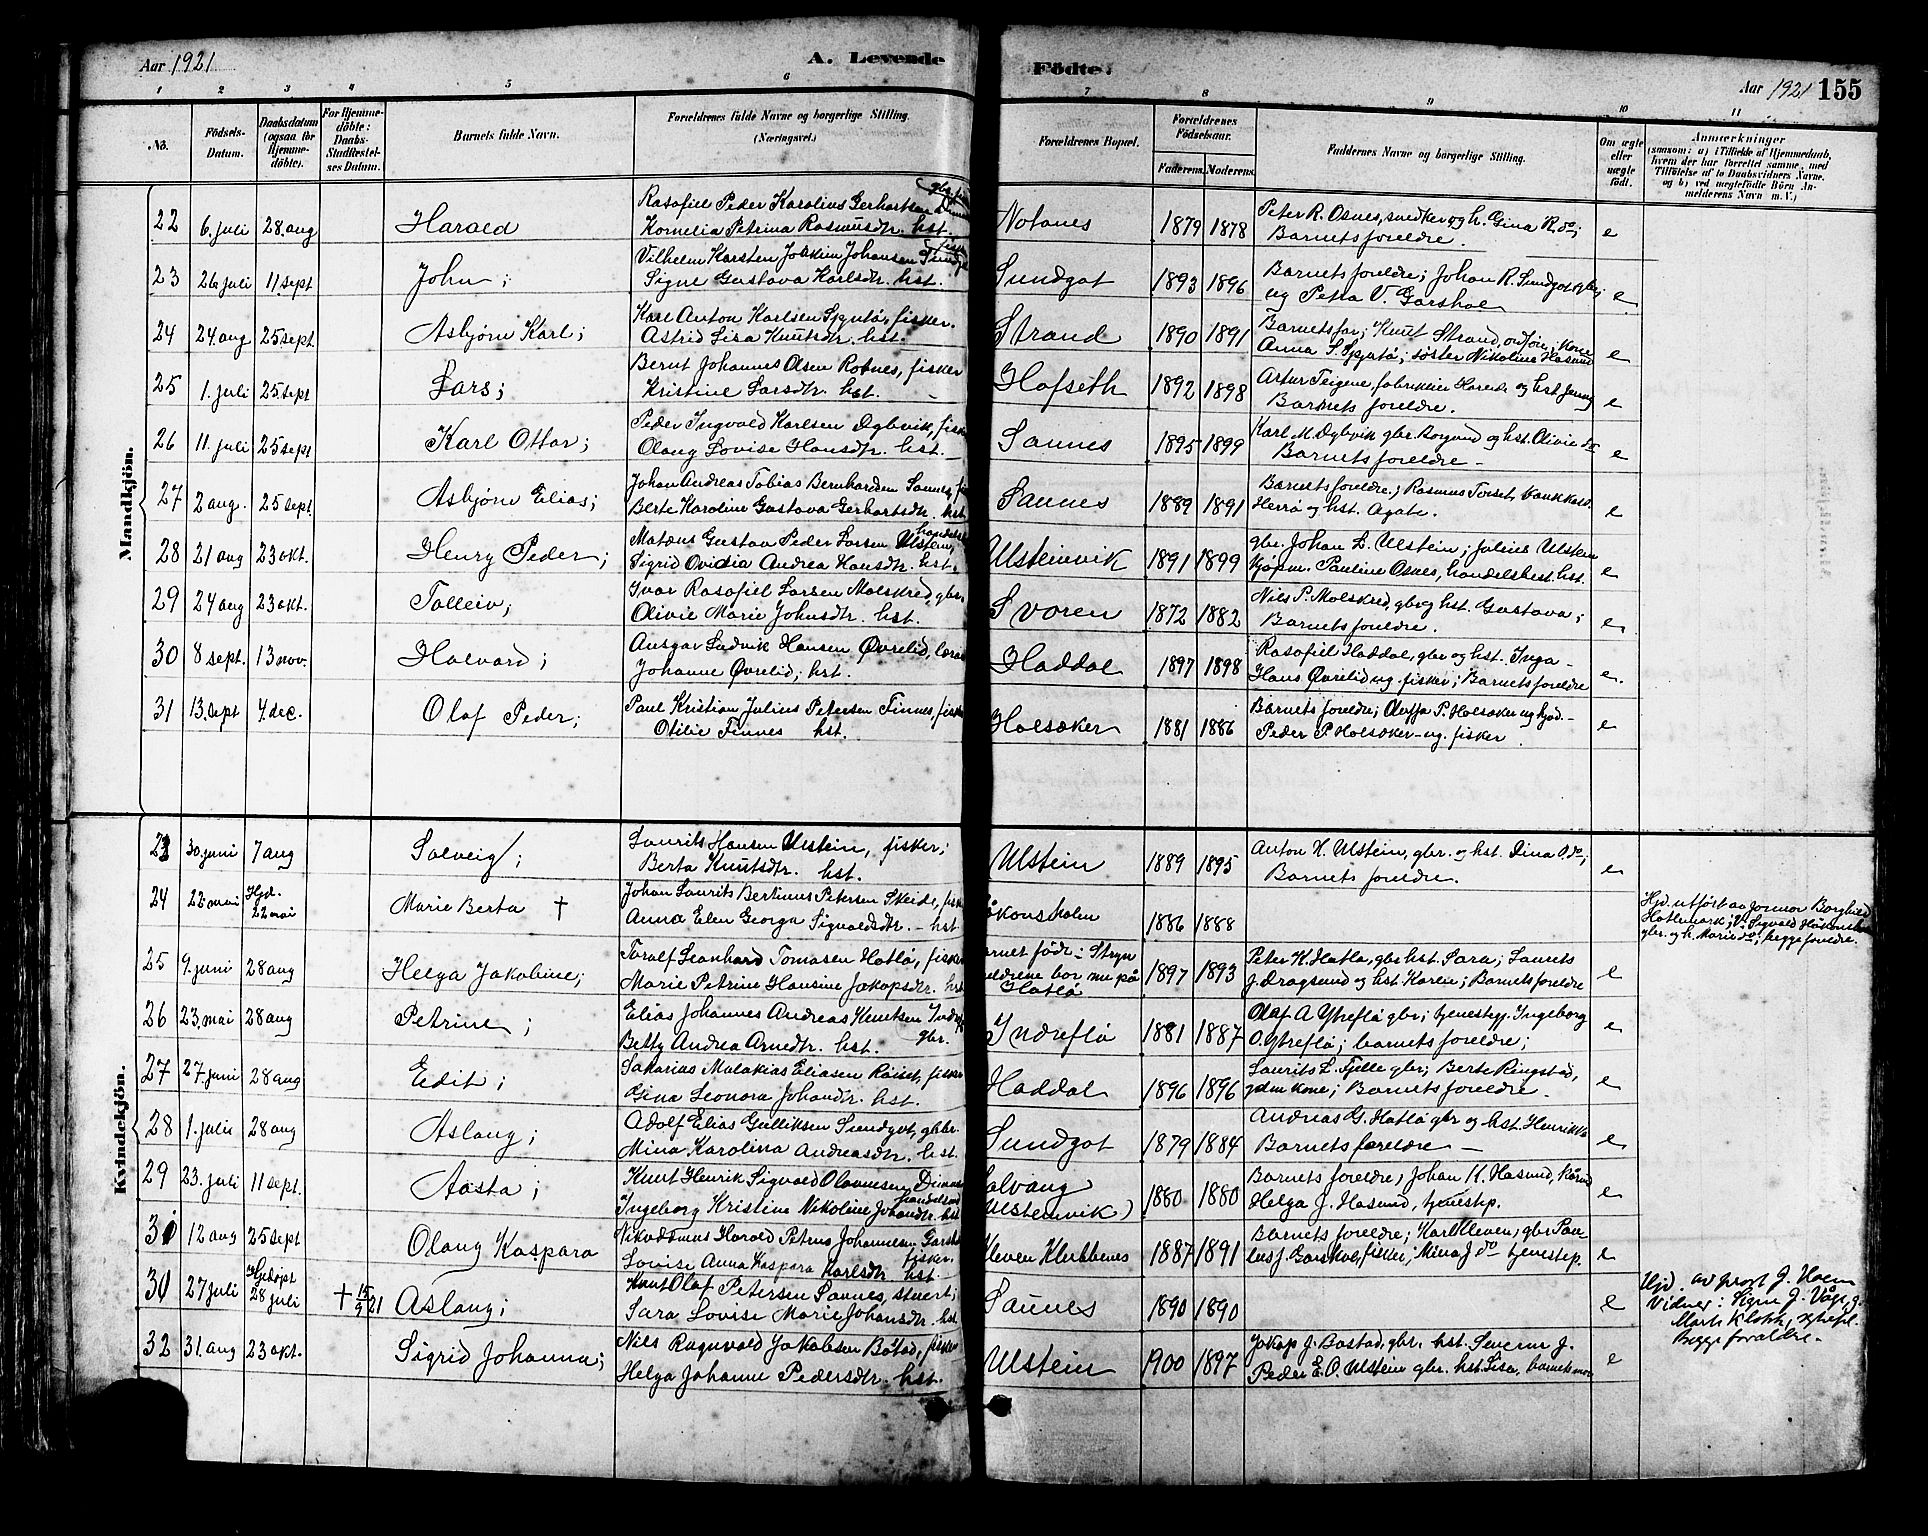 Aar 1921
A. Levende
Födte.
Aar 1921 155
1 2 3 4 5 6 7 8 9 10 11
No.
Födsels-Datum.
Daabsdatum (ogsaa for Hjemme-döbte).
For Hjemme-döbte: Daabs-Stadfæstel-ses Datum.
Barnets fulde Navn.
Forældrenes fulde Navne og borgerlige Stilling. (Næringsvei.)
Forældrenes Bopæl.
Forældrenes Födselsaar.
Faderens. Moderens.
Faddernes Navne og borgerlige Stilling.
Om ægte eller uægte födt.
Anmærkninger
(saasom: a) i Tilfælde af Hjemmedaab, hvem der har forrettet samme, med Tilföielse af to Daabsvidners Navne, og b) ved uægtefödte Börn Anmelderens Navn m. V.)
Mandkjön.
22 6. juli 28. aug Harald
Rasofiel Peder Karolius Gerhartsen
Kornelia Petrina Rasmusdtr. hst.
Notanes 1879 1878
Peter R. Osnes, snedker og h. Gina R. do;
Barnets foreldre. e
23 26 juli 11 sept John;
Vilhelm Karsten Joakim Johansen Sundgot
Signe Gustava Karlsdtr. hst.
Sundgot 1893 1896
Barnets foreldre; Johan R. Sundgot gbr;
og Petra V. Garshol e
24 24. aug 25. sept Asbjørn Karl;
Karl Anton Karlsen, fisker.
Astrid Lisa Knutsdtr. hst.
Strand 1890 1891
Barnets far; Knut Strand, kone
Anna S.; søster Nikoline Hasund e
25 1. juli 25. sept Lars;
Bernt Johannes Olsen Rotnes, fisker
Kristine Larsdtr. hst.
Hofseth 1892 1898
Artur Teigene, og hst Jenny
Barnets foreldre. e
26 11. juli 25 sept Karl Ottar;
Peder Ingvald Karlsen Dybvik, fisk
Olaug Lovise Hansdtr. hst.
Saunes 1895 1899
Karl M. Dybvik gbr. og hst. Olivie do
Barnets foreldre - e
27 2 aug. 25 sept. Asbjørn Elias;
Johan Andreas Tobias Bernhardsen Saunes, fi
Berte Karoline Gustava Gerhartsdtr. hst
Saunes 1889 1891
Barnets foreldre; Rasmus
Herrø og hst. Agate. e
28 21 aug 23 okt. Henry Peder;
Matæus Gustav Peder Larsen Ulstein,
Sigrid Ovidia Andrea Hansdtr. hst.
Ulsteinvik 1891 1899
gbr. Johan L. Ulstein; Julius Ulstein
kjøpm. Pauline Osnes, handelsbest. hst. e
29 24 aug 23 okt. Tolleiv;
Ivar Rasofiel Larsen Molskred, gbr.
Olivie Marie Johnsdtr. hst.
Svoren 1872 1882
Nils P. Molskred, gbr og hst. Gustava;
Barnets foreldre. e
30 8 sept. 13 nov. Halvard;
Ansgar Ludvik Hansen Øvrelid,
Johanne Øvrelid; hst.
Haddal 1897 1898
Rasofiel Haddal, gbr og hst. Inga -
Hans Øvrelid ug. fisker; Barnets foreldre e.
31 13. sept 4. dec. Olaf Peder;
Paul Kristian Julius Petersen Finnes, fisk
Otilie Finnes hst.
Holsæker 1881 1886
Barnets foreldre; P. Holsæker
Peder P Holsæker - ug. fisker e
Kvindekjön.
23 30. juni 7 aug Solveig;
Laurits Hansen Ulstein, fisker;
Berta Knutsdtr. hst.
Ulstein 1889 1895
Anton H. Ulstein, gbr. og hst. Dina O. do;
Barnets foreldre. e
24 22. mai Hjd. 22 mai Marie Berta †
Johan Laurits Bertinus Petersen Skeide, fisk
Anna Elen Georga Sigvaldsdtr. - hst
1886 1888
Hjd. utført av Borghild
Hatlemark; V. Sigvald
gbr. og h. Marie do; begge foreldre.
25 9. juni 28 aug Helga Jakobine;
Toralf Leonhard Tomasen Hatlø, fisk
Marie Petrine Hansine Jakopsdtr. hst
Barnet født i Stryn
bor nu på
Hatlø 1897 1893
Peter K. Hatlø, gbr hst. Sara; Laurits
J. Dragsund og hst Karen; Barnets foreldre e
26 23. mai 28 aug Petrine;
Elias Johannes Andreas Knutsen
Betty Andrea Arnedtr. hst. gbr.
Indreflø 1881 1887
Olaf A Ytreflø gbr; tjenestep. Ingeborg
O. Ytreflø; barnets foreldre; e
27 27 juni 28 aug Edit;
Sakarias Malakias Eliasen Røiset, fisker
Gina Leonora Johandtr. hst.
Haddal 1896 1896
Laurits L. Fjelle gbr; Berte Ringstad,
gdm kone; Barnets foreldre. e
28 1. juli 28 aug Aslaug;
Adolf Elias Gulliksen Sundgot, gbr.
Mina Karolina Andreasdtr. hst
Sundgot 1879 1884
Andreas G. Hatlø gbr og hst. Henrikke
Barnets foreldre - e
29 23. juli 11 sept. Aasta;
Knut Henrik Sigvald Olausen
Ingeborg Kristine Nikoline Johandtr. hst
Solvang
Ulsteinvik) 1880 1880
Barnets foreldre, Johan K. Hasund,
Helga J. Hasund, tjenestep. e
30 12 aug 25 sept Olaug Kaspara
Nikodemus Harald Petrus Johannesen Garshol
fisker.
Lovise Anna Kaspara Karlsdtr hst.
Kleven Klubbenes 1887 1891
Barnets foreldre; Karl Kleven, gbr
J. Garshol, fisker, Mina J do tjenestep. e
31 27 juli Hjdøpt 28 juli † 15/9 21 Aslaug;
Knut Olaf Petersen Saunes, stuert;
Sara Lovise Marie Johansdtr. hst
Saunes 1890 1890 e
Hjd. av prost J. Hoem
Vidner: Signe J. Våge,
Begge foreldre.
32 31. aug 23 okt. Sigrid Johanna;
Nils Ragnvald Jakobsen Båtad, fisker
Helga Johanne Pedersdtr. hst.
Ulstein 1900 1897
Jakop J. Bostad, gbr. hst. Severine J.
Peder E. O. Ulstein gbr. hst. Lisa, barnets mor e